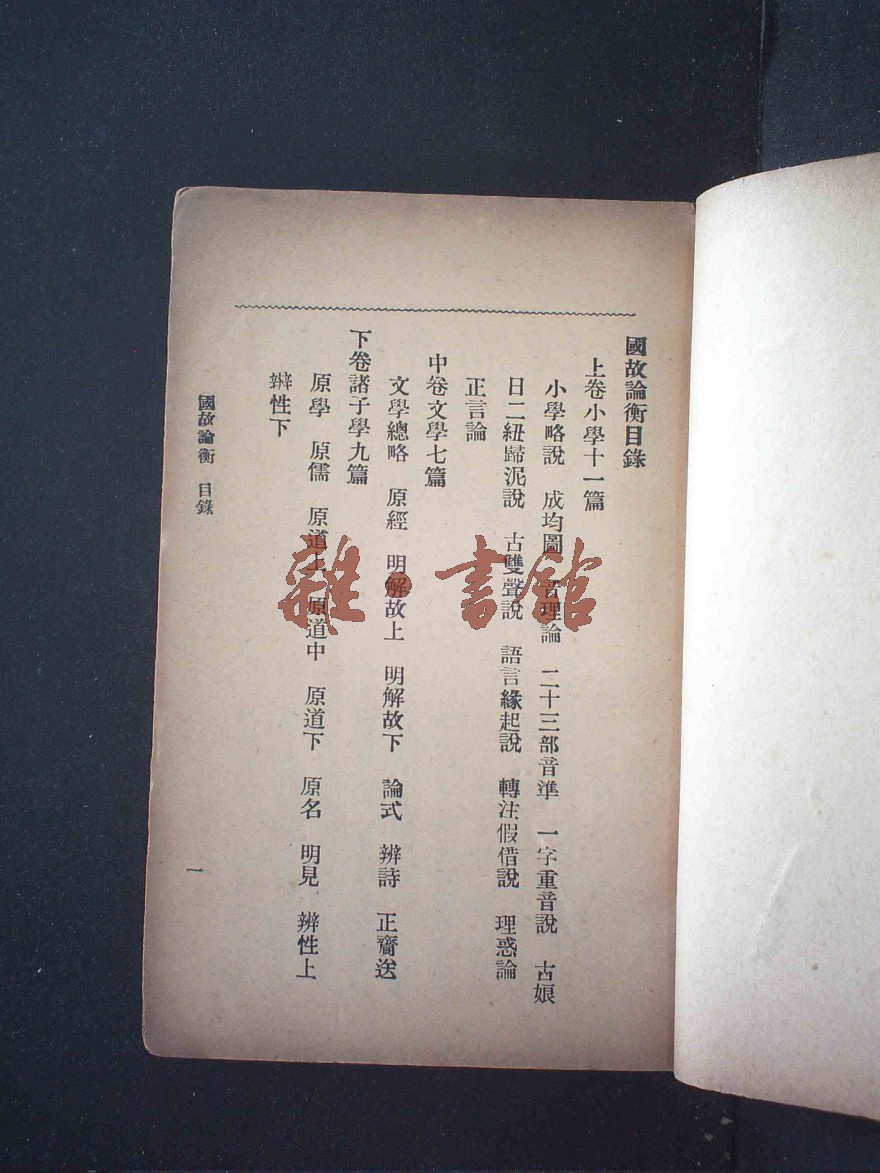 國故論衡目錄
上卷小學十一篇
小學略說 成均圖 音理論 二十三部音準 一字重音說 古娘
日二紐歸泥說 古雙聲說 語言緣起說 轉注假借說 理惑論
正言論
中卷文學七篇
文學總略 原經 明解故上 明解故下 論式 辨詩 正齎送
下卷諸子學九篇
原學 原儒 原道上 原道中 原道下 原名 明見 辨性上
辨性下
國故論衡 目錄
一
雜·書館